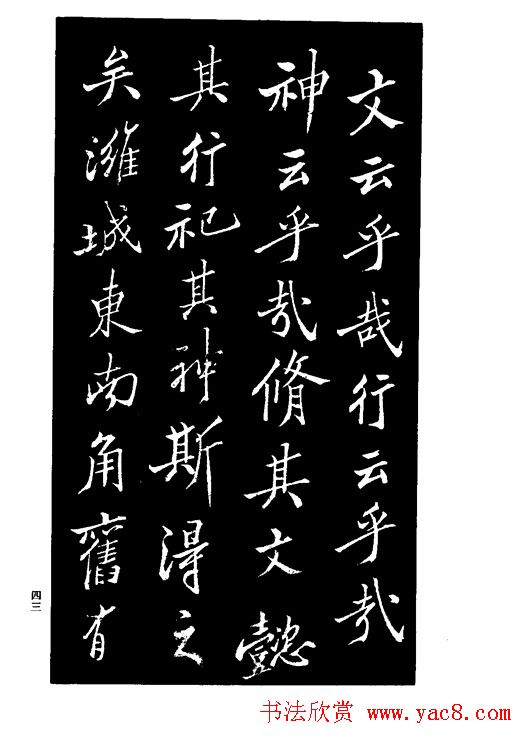 文云乎哉行云乎哉
神云乎哉脩其文懿
其行祀其神斯得之
矣濰城東南角舊有
四三
书法欣赏 www.yac8.com